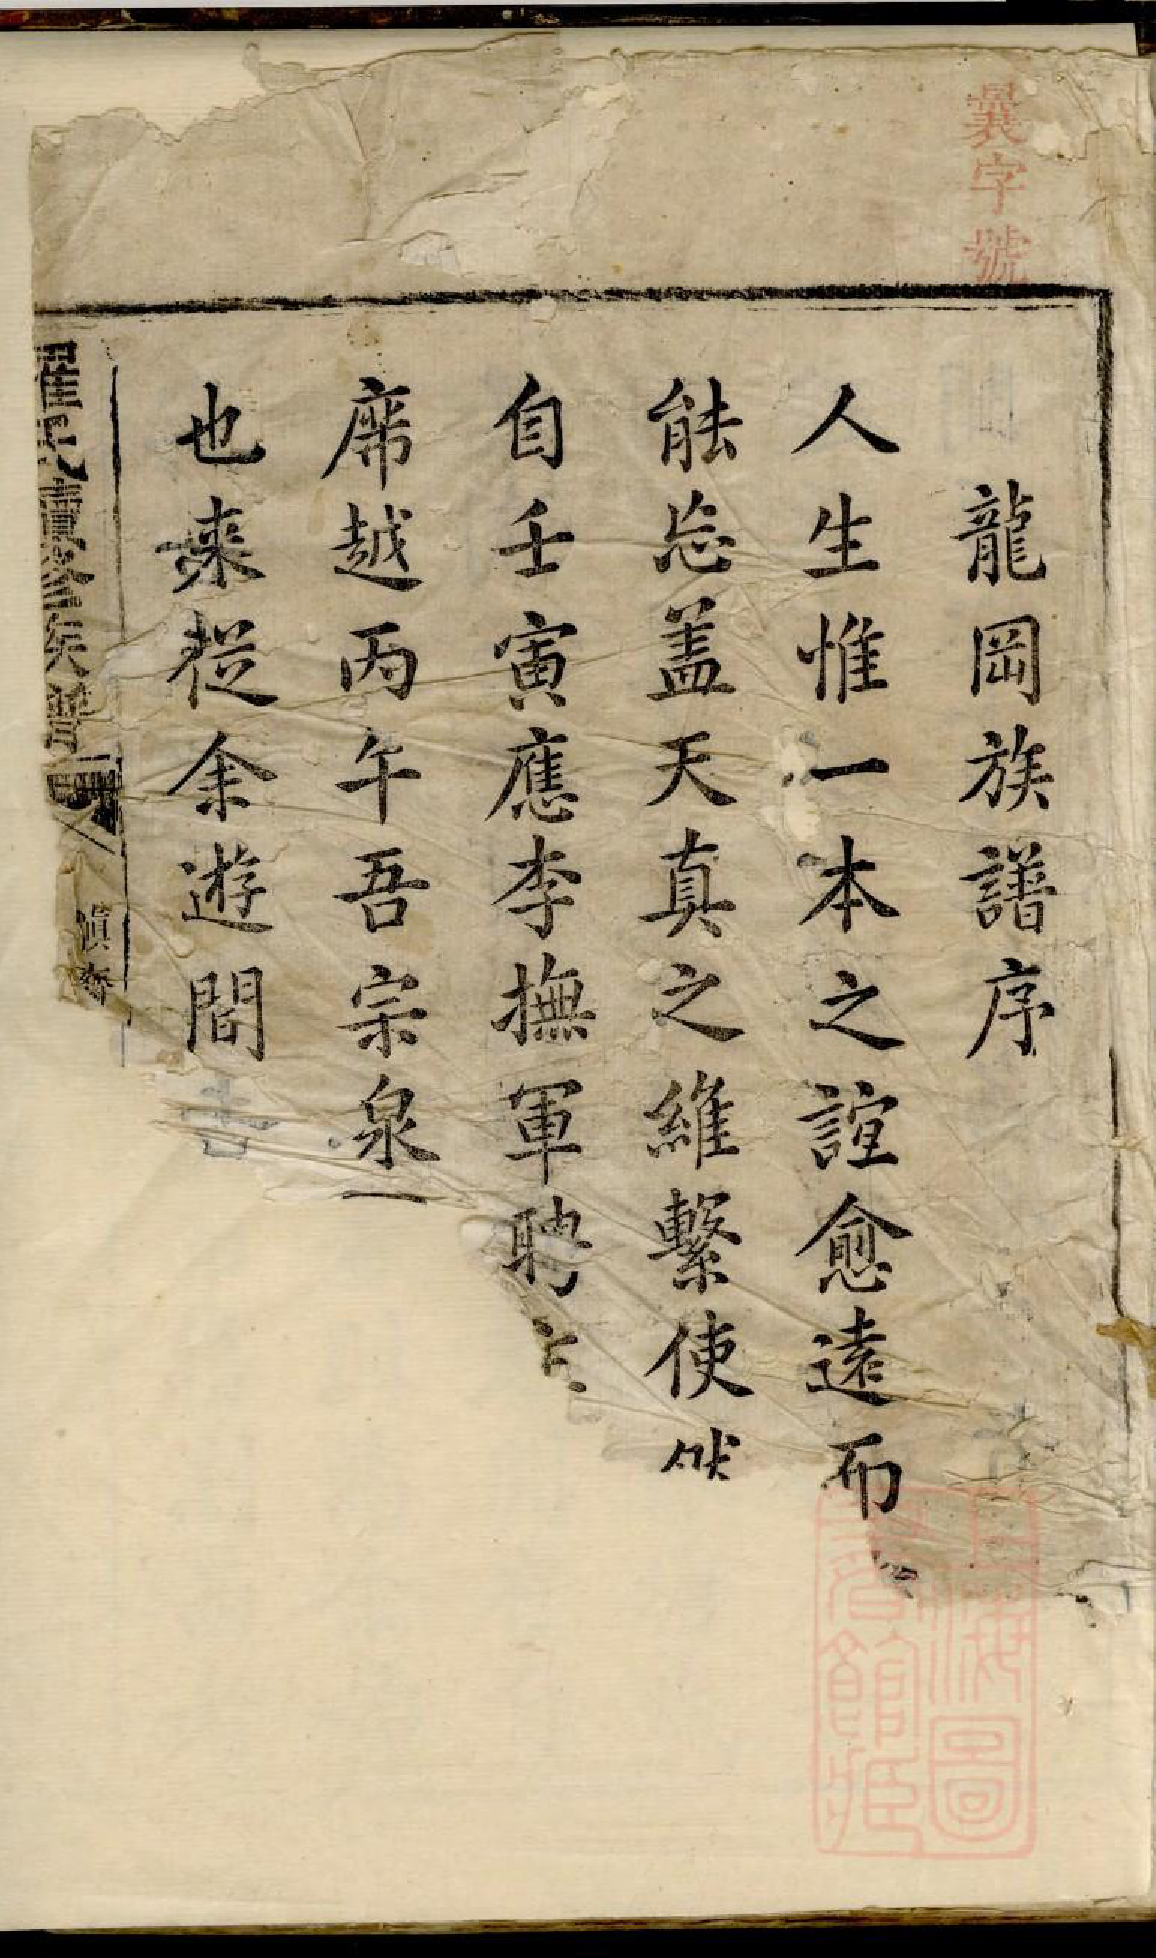 曩字號
龍岡族譜序
人生惟一本之誼愈遠而
能忘盖天真之維繫使然
自壬寅應李撫軍聘
席越丙午吾宗泉一
也来従余遊間
氏續修族譜
滇
上海圖書館藏